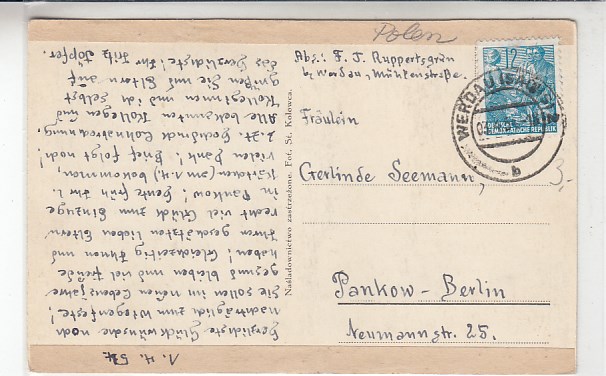 Polen
Abs.: F. T. Ruppertsgrün
b/ Werdau, Mühlenstraße.
Fräulein
Gerlinde Seemann,
3,-
Pankow-Berlin
Neumannstr. 25.
12
DEUTSCHE
DEMOKRATISCHE REPUBLIK
WERDAU (SACHS)
b
Nasladownictwo zastrzeżone. Fot. St. Kolowca.
1. 4. 54.
Herzlichste Glückwünsche noch
nachträglich zum Wiegenfeste!
Sie sollen im neuen Lebensjahre
gesund bleiben und viel Freude
haben! Gleichzeitig Ihnen und
Ihren geschätzten lieben Eltern
recht viel Glück zum Einzuge
in Pankow! Heute Ihr l.
Kärtchen (am 1.4.) bekommen.
vielen Dank! Brief folgt noch!
z. Zt. Lohnabrechnung.
Alle bekannten Kollegen und
Kolleginnen und ich selbst
grüßen Sie und Eltern auf
das herzlichste! Ihr Fritz
Töpfer.